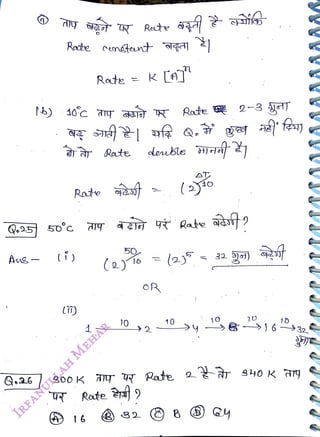 (a) ताप बढ़ाने पर Rate बढ़ती है क्योंकि
Rate constant बढ़ता है।
Rate = K [A]ⁿ
(b) 10°C ताप बढ़ाने पर Rate 2-3 गुना
बढ़ जाती है। यदि Q. में कुछ नहीं दिया
हो तो Rate double माननी है।
Rate बढ़ेगी = (2)^ΔT/10
Q.25 50°C ताप बढ़ाने पर Rate बढ़ेगी?
Ans- (i) (2)^50/10 = (2)^5 = 32 गुना बढ़ेगी
OR
(ii)
1 →10 2 →10 4 →10 8 →10 16 →10 32 गुना
Q.26 300K ताप पर Rate 2 है तो 340K ताप
पर Rate होगी?
(A) 16 (B) 32 (C) 8 (D) 64
IRFANULLAH MEHAR